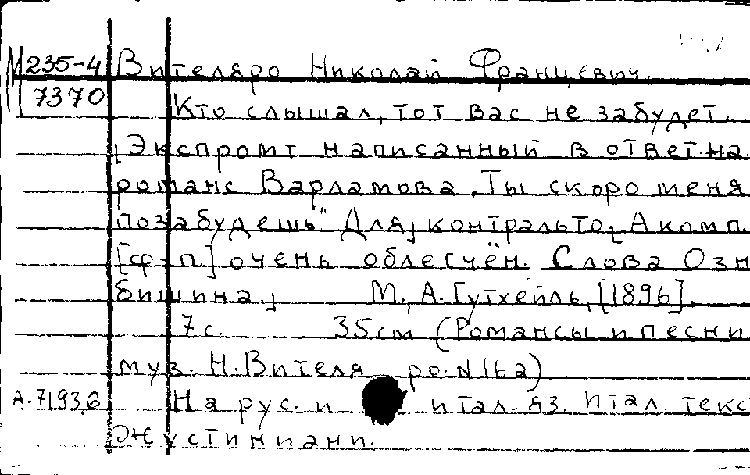 М 235-4 Вителяро Николай Францевич.
7370 Кто слышал, тот вас не забудет.
[Экспромт написанный в ответ на
романс Варламова „Ты скоро меня
позабудешь" Для] контральто[. Акомп.
[ф-п] очень облегчён. Слова Озно
бишина] М., А. Гутхейль, [1896].
7 с. 35 см (Романсы и песни
муз. Н. Вителяро. N 16а)
А. 7193,6 На рус. и итал. яз. Итал. текс
Жустиниани.